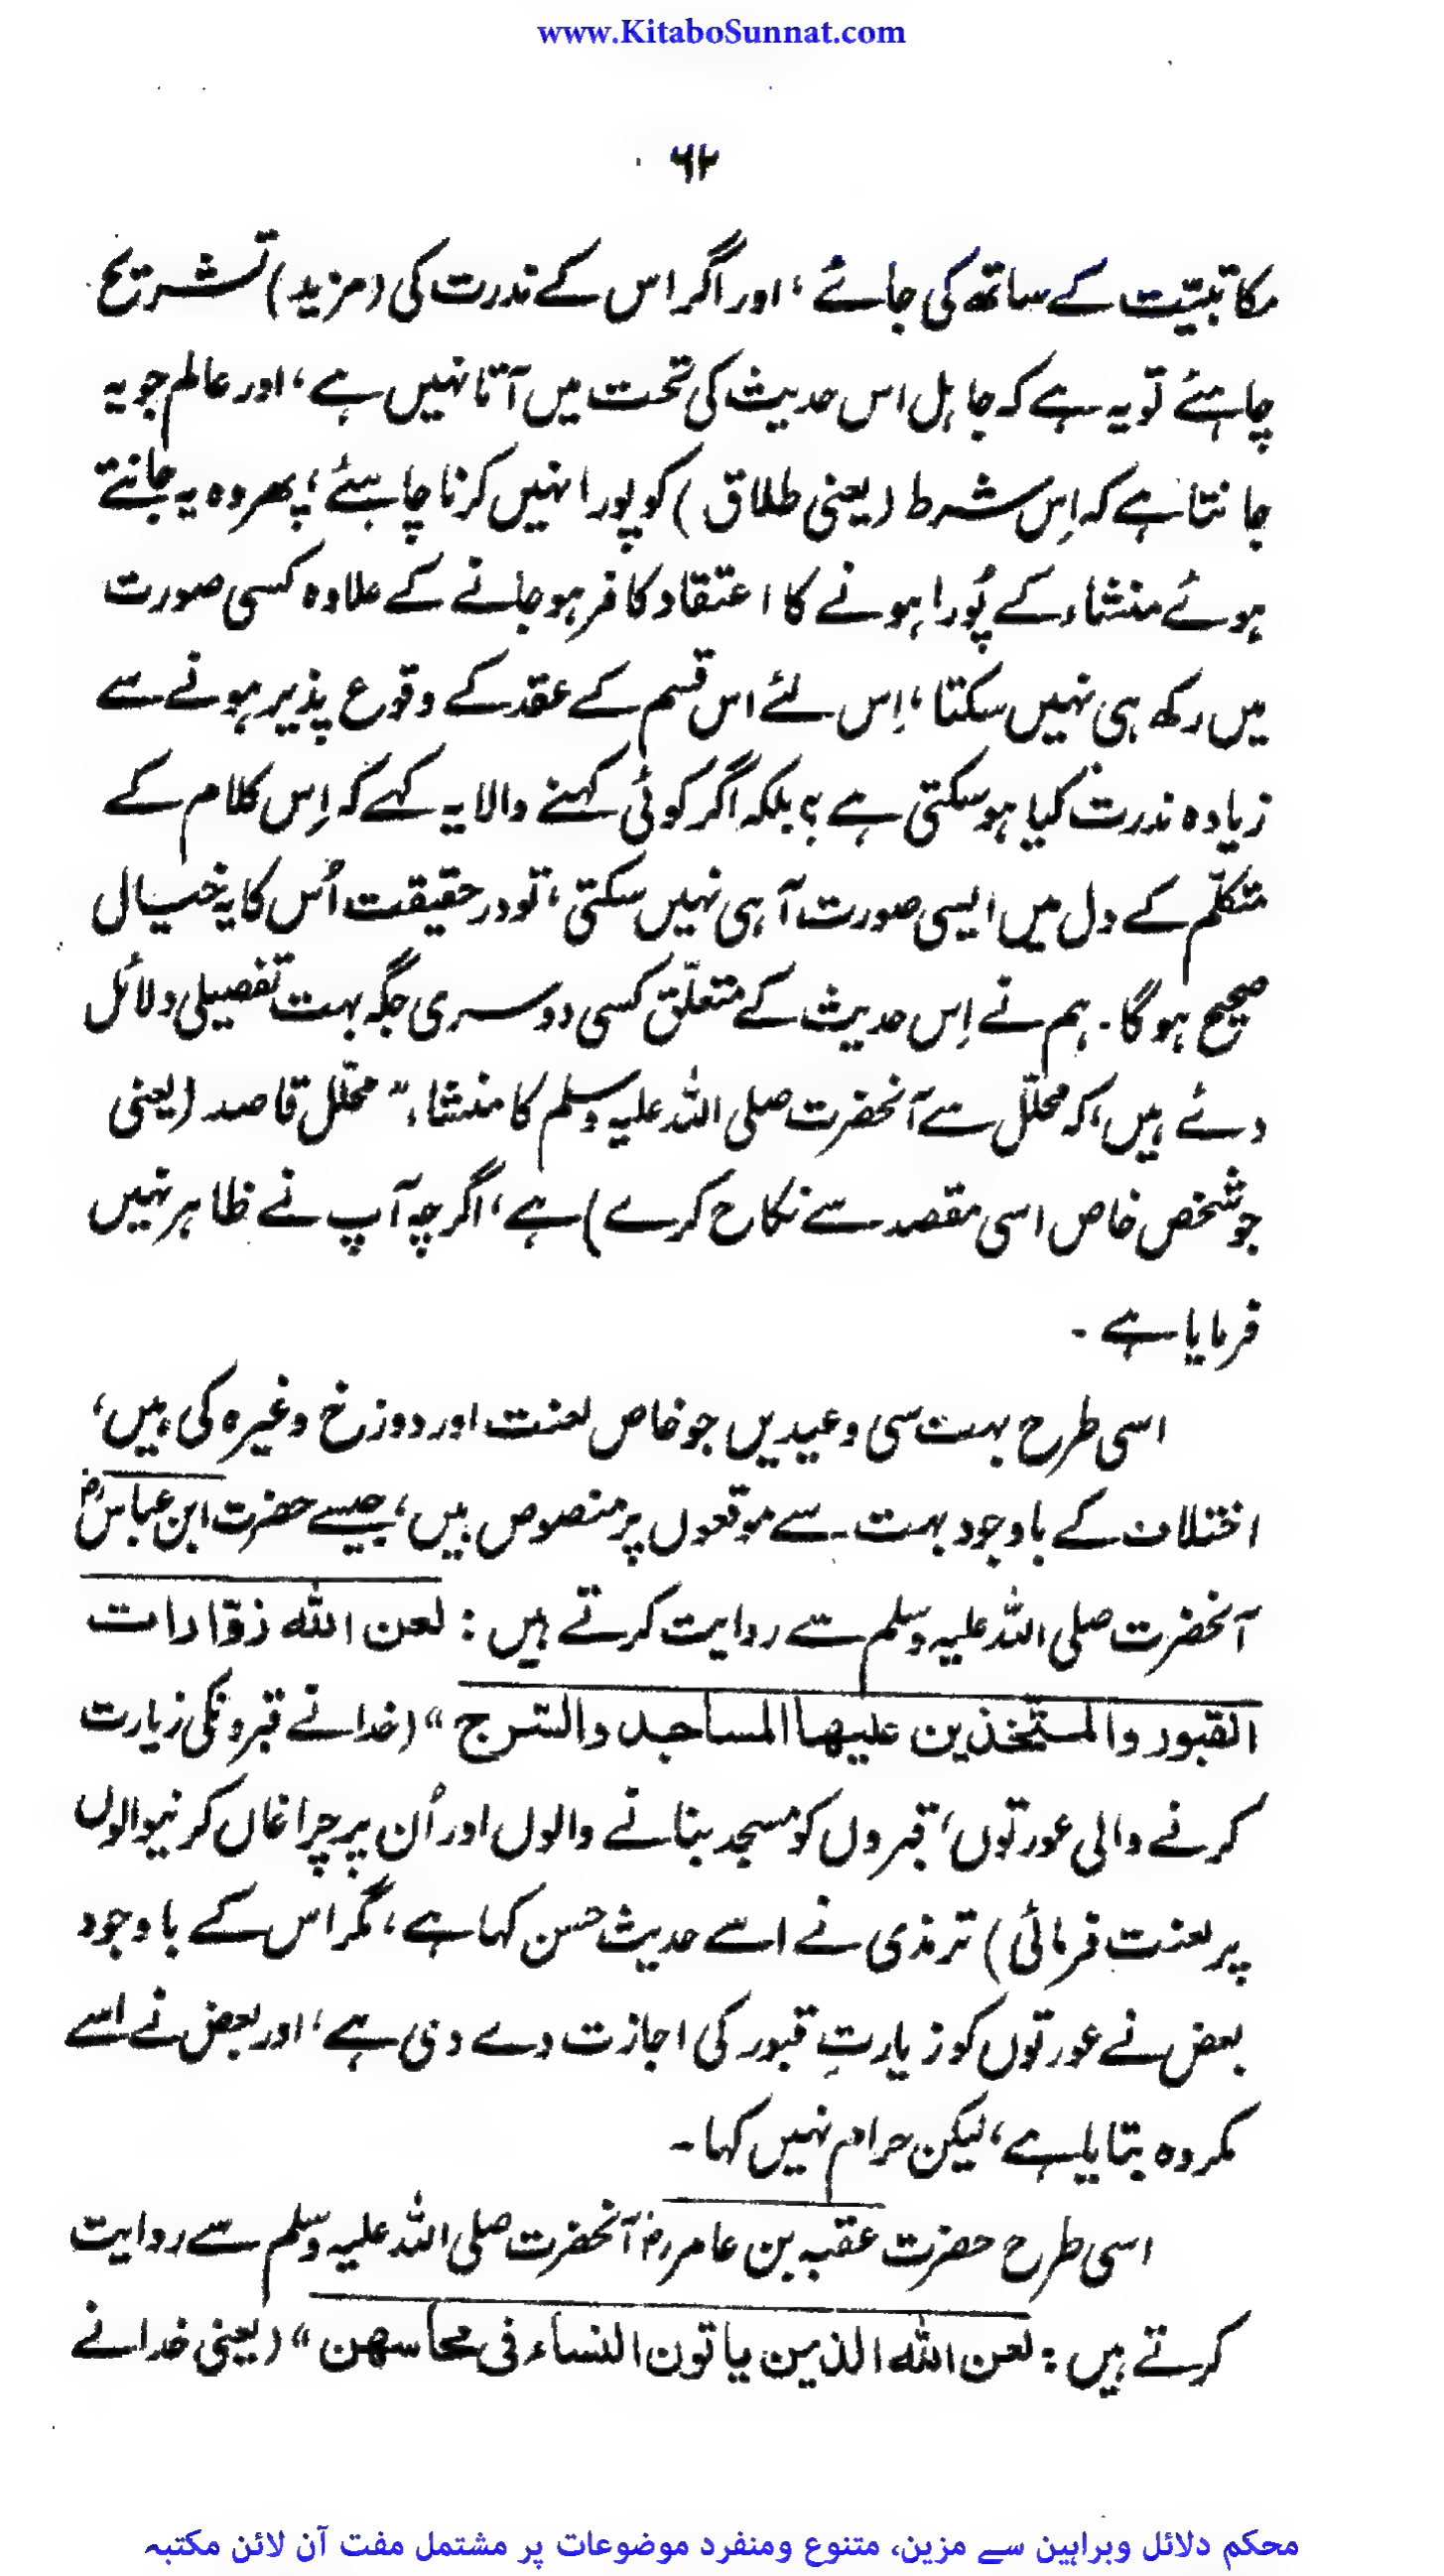 www.KitaboSunnat.com
۶۲
مکاتبیّت کے ساتھ کی جائے، اور اگر اس کے ندرت کی (مزید) تشریح
چاہئے تو یہ ہے کہ جاہل اس حدیث کی تحت میں آتا نہیں ہے، اور عالم جو یہ
جانتا ہے کہ اِس شرط (یعنی طلاق) کو پورا نہیں کرنا چاہیئے، پھر وہ یہ جانتے
ہوئے منشاء کے پُورا ہونے کا اعتقاد کافر ہو جانے کے علاوہ کسی صورت
میں رکھ ہی نہیں سکتا، اِس لئے اس قسم کے عقد کے وقوع پذیر ہونے سے
زیادہ ندرت کیا ہو سکتی ہے؟ بلکہ اگر کوئی کہنے والا یہ کہے کہ اِس کلام کے
متکلّم کے دل میں ایسی صورت آ ہی نہیں سکتی، تو در حقیقت اُس کا یہ خیال
صحیح ہوگا۔ ہم نے اِس حدیث کے متعلّق کسی دوسری جگہ بہت تفصیلی دلائل
دئے ہیں، کہ محلّل سے آنحضرت صلی اللہ علیہ وسلم کا منشاء، "محلّل قاصد (یعنی
جو شخص خاص اسی مقصد سے نکاح کرے) ہے، اگرچہ آپ نے ظاہر نہیں
فرمایا ہے۔
اسی طرح بہت سی وعیدیں جو خاص لعنت اور دوزخ وغیرہ کی ہیں،
اختلاف کے باوجود بہت سے موقعوں پر منصوص ہیں، جیسے حضرت ابن عباسؓ
آنحضرت صلی اللہ علیہ وسلم سے روایت کرتے ہیں: لعن اللہ زوّارات
القبور والمتخذین علیھا المساجد والسّرج" (خدا نے قبرونکی زیارت
کرنے والی عورتوں، قبروں کو مسجد بنانے والوں اور اُن پر چراغاں کرنیوالوں
پر لعنت فرمائی) ترمذی نے اسے حدیث حسن کہا ہے، مگر اس کے باوجود
بعض نے عورتوں کو زیارتِ قبور کی اجازت دے دی ہے، اور بعض نے اسے
مکروہ بتایا ہے، لیکن حرام نہیں کہا۔
اسی طرح حضرت عقبہ بن عامرؓ آنحضرت صلی اللہ علیہ وسلم سے روایت
کرتے ہیں: لعن اللہ الذین یاتون النساء فی محاسھن" (یعنی خدا نے
محکم دلائل وبراہین سے مزین، متنوع ومنفرد موضوعات پر مشتمل مفت آن لائن مکتبہ